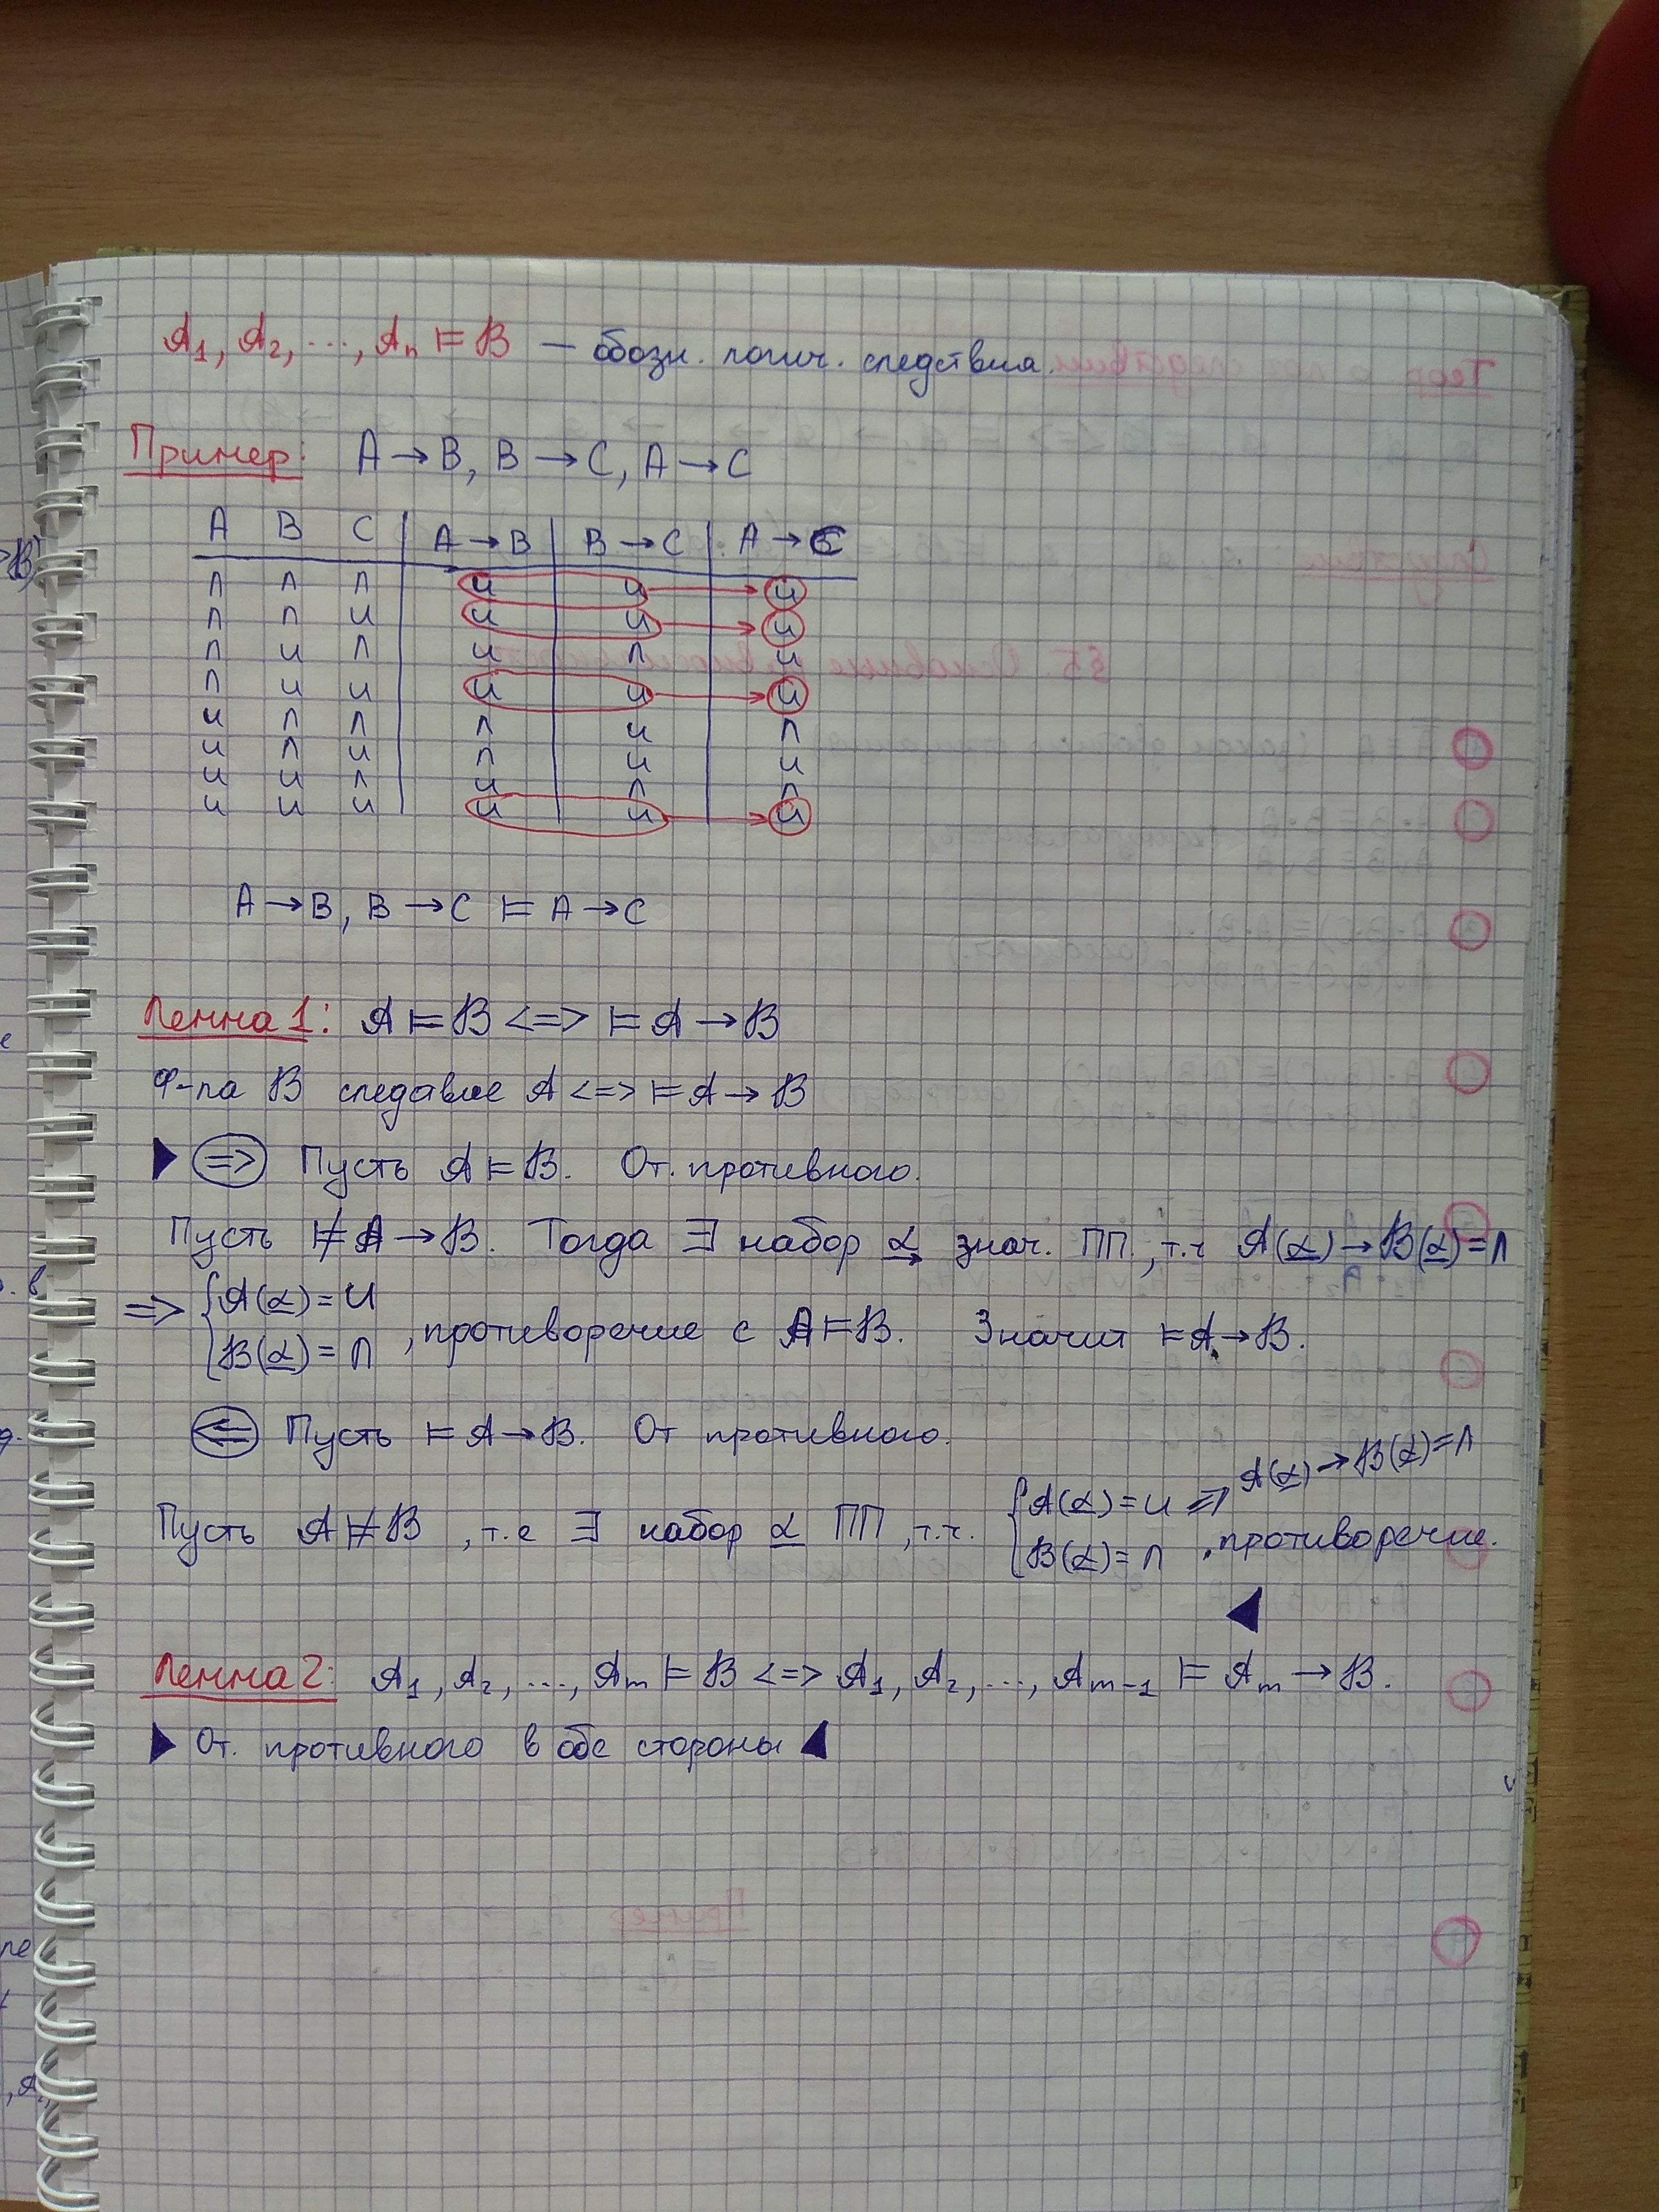 A₁, A₂, ..., Aₙ ⊨ B — обозн. логич. следствия.
Пример: A → B, B → C, A → C
A B C | A → B | B → C | A → C
Л Л Л | И | И | И
Л Л И | И | И | И
Л И Л | И | Л | И
Л И И | И | И | И
И Л Л | Л | И | Л
И Л И | Л | И | И
И И Л | И | Л | Л
И И И | И | И | И
A → B, B → C ⊨ A → C
Лемма 1: A ⊨ B <=> ⊨ A → B
Ф-ла B следавие A <=> ⊨ A → B
▶ (=>) Пусть A ⊨ B. От. противного.
Пусть ⊭ A → B. Тогда ∃ набор α знач. ПП, т.ч A(α) → B(α) = Л
=> { A(α) = И
B(α) = Л , противоречие с A ⊨ B. Значит ⊨ A → B.
(<=) Пусть ⊨ A → B. От противного.
Пусть A ⊭ B, т.е ∃ набор α ПП, т.ч. { A(α) = И => A(α) → B(α) = Л
B(α) = Л , противоречие.
◀
Лемма 2: A₁, A₂, ..., Aₘ ⊨ B <=> A₁, A₂, ..., Aₘ₋₁ ⊨ Aₘ → B.
▶ От. противного в обе стороны ◀